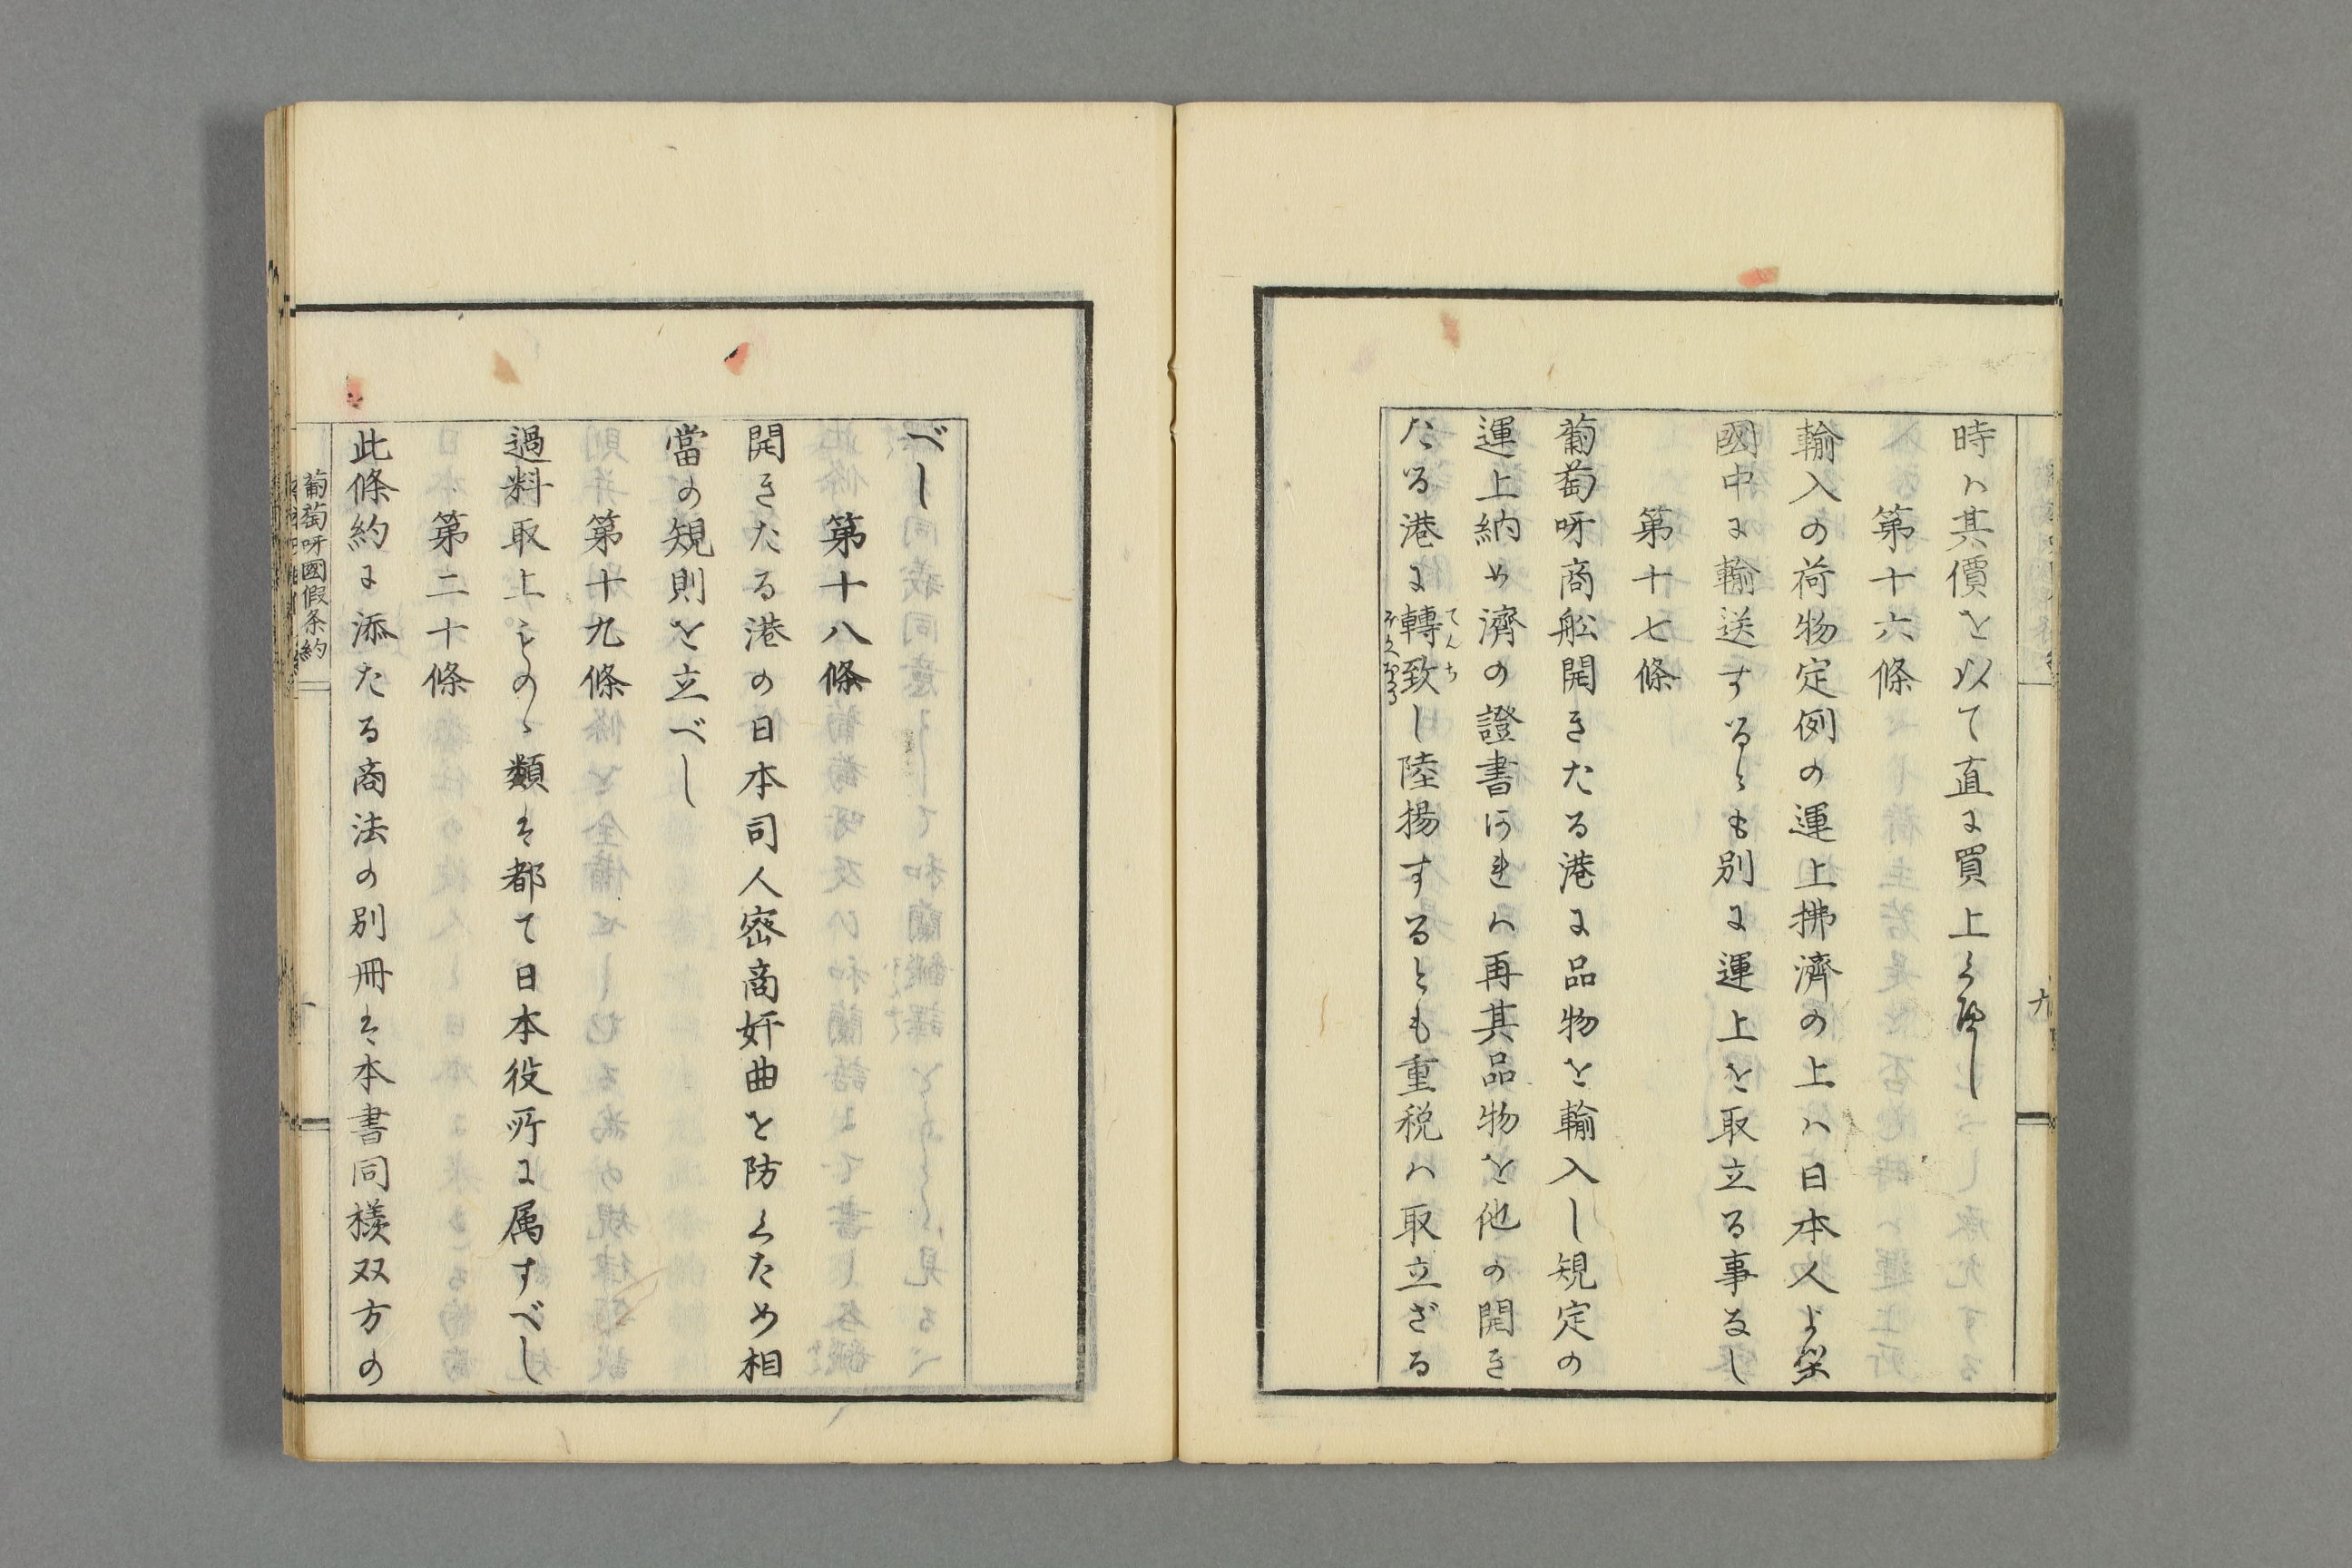 時ハ其價を以て直に買上く遍し
第十六條
輸入の荷物定例の運上拂濟の上ハ日本人より
國中に輸送するとも別に運上を取立る事なし
第十七條
葡萄呀商舩開きたる港に品物を輸入し規定の
運上納め濟の證書あれハ再其品物を他の開き
たる港に轉致し陸揚するとも重税ハ取立ざる
てんち
べし
第十八條
開きたる港の日本司人密商奸曲を防くため相
當の規則を立べし
第十九條
過料取上ものゝ類は都て日本役所に属すべし
第二十條
此條約に添たる商法の別冊は本書同様双方の
葡萄呀國假条約
九